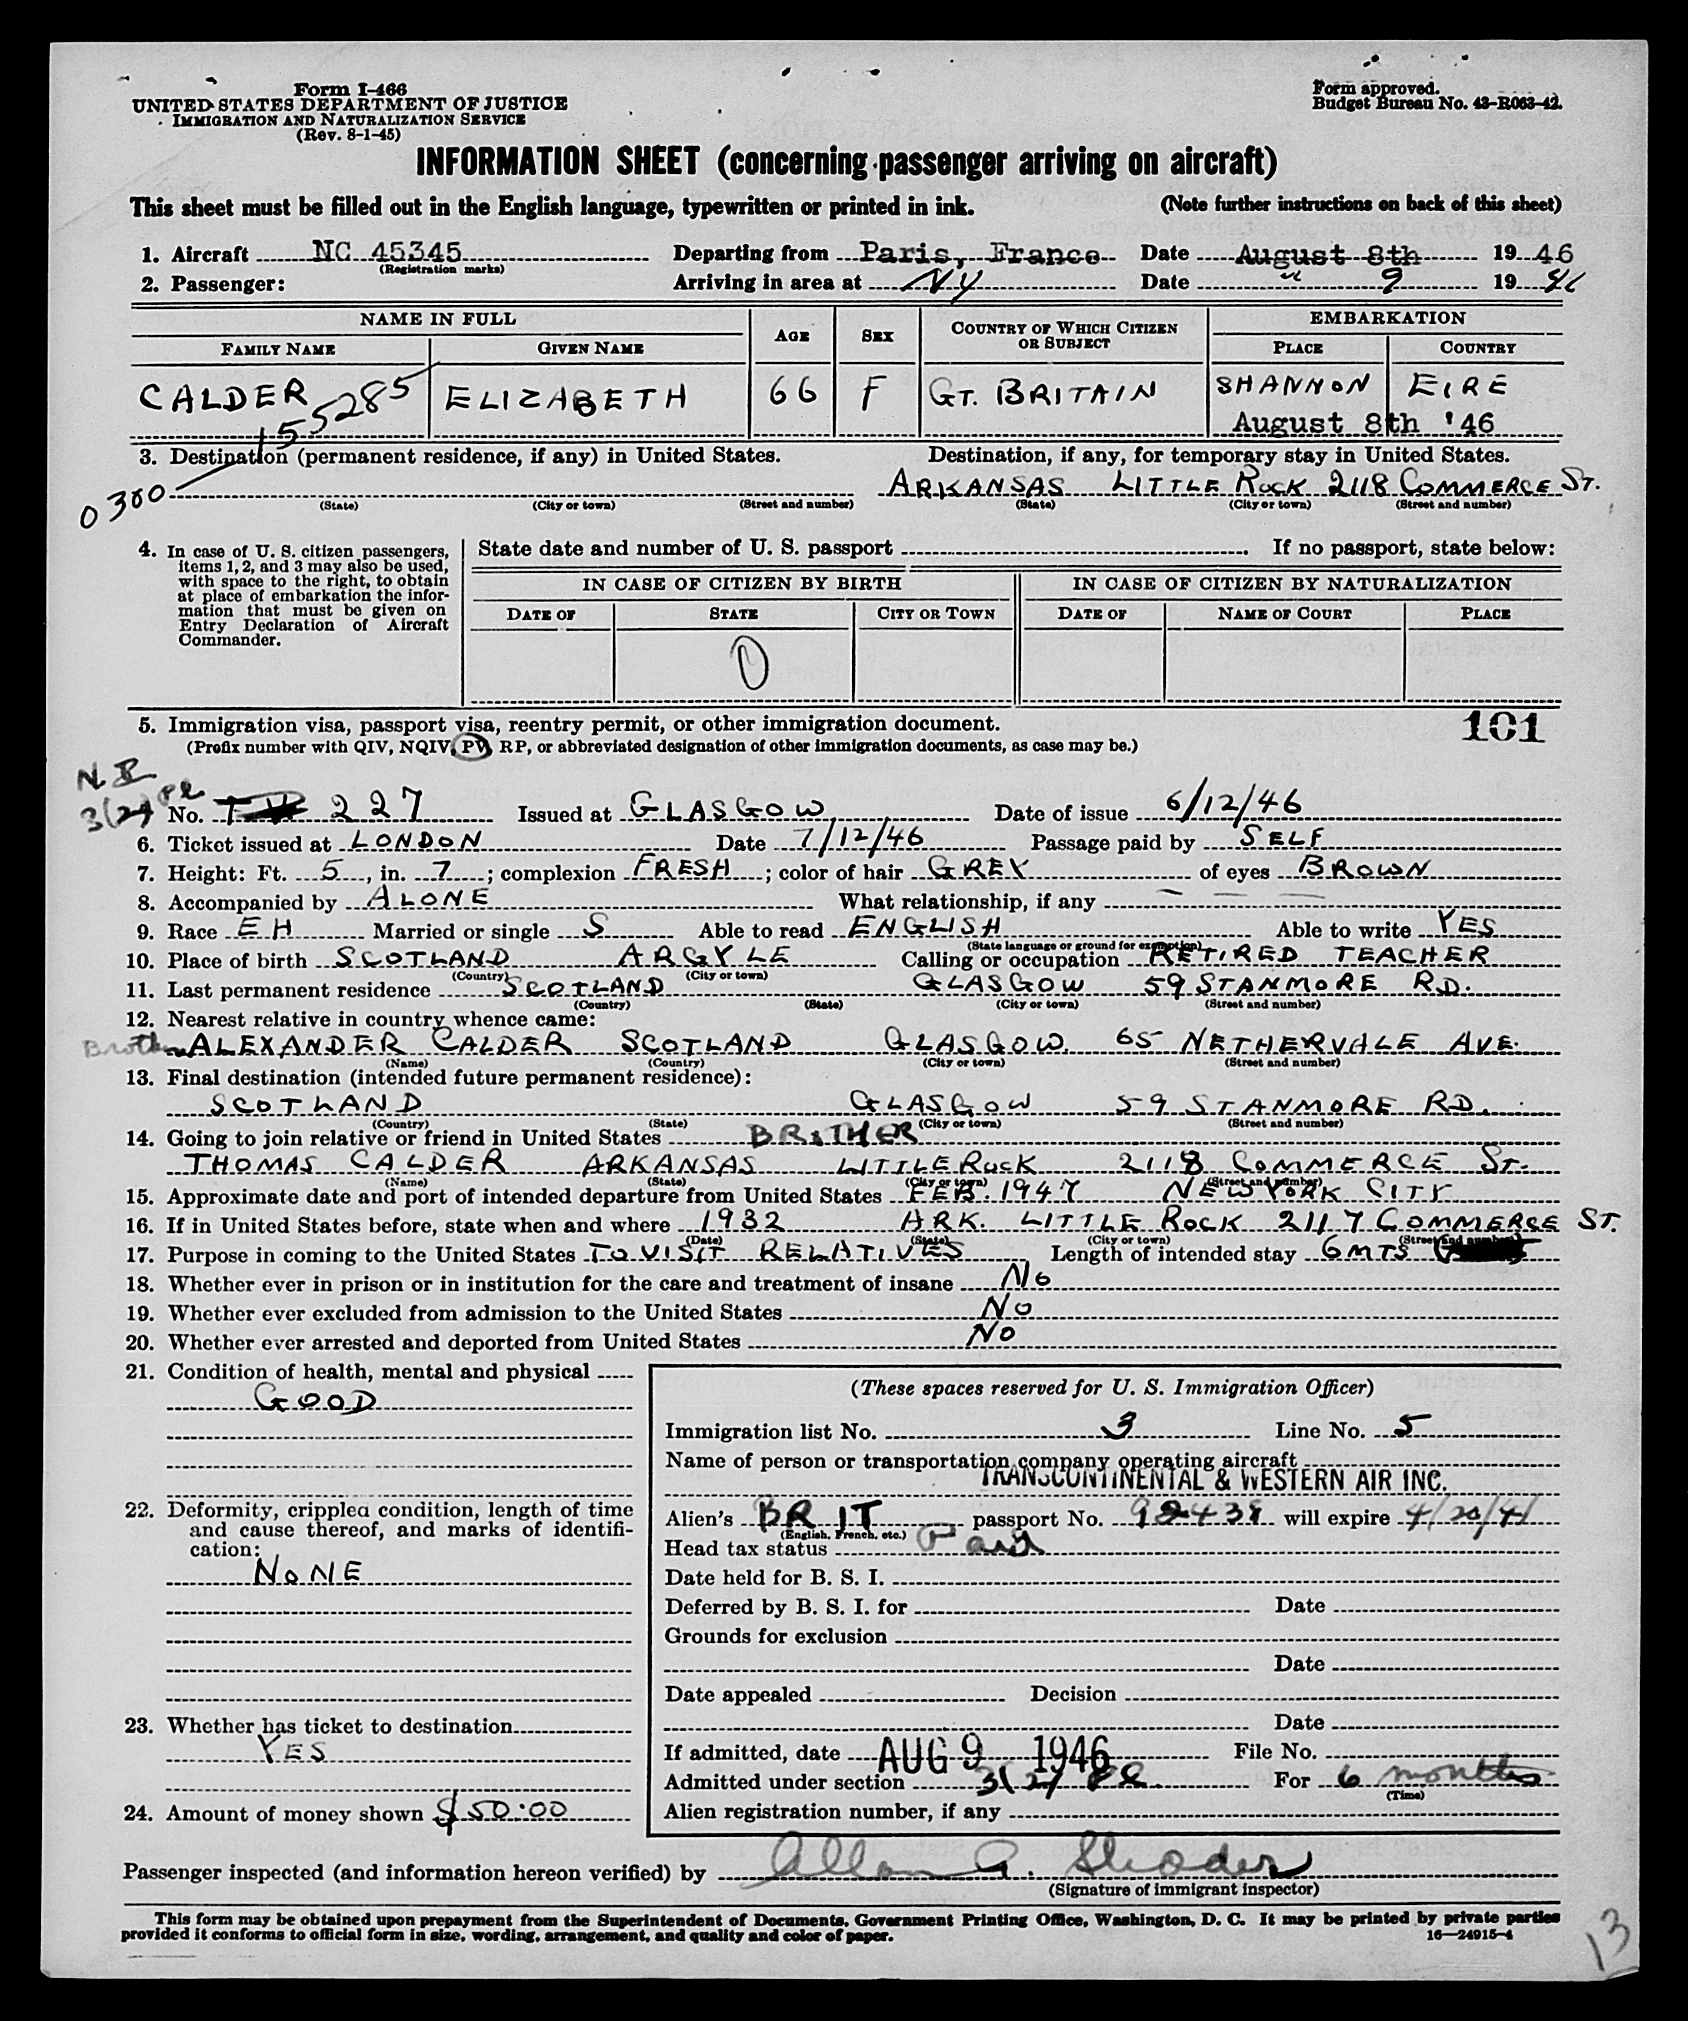 Form I-466
UNITED STATES DEPARTMENT OF JUSTICE
IMMIGRATION AND NATURALIZATION SERVICE
(Rev. 8-1-45)
Form approved.
Budget Bureau No. 43-R063-42.
INFORMATION SHEET (concerning passenger arriving on aircraft)
This sheet must be filled out in the English language, typewritten or printed in ink. (Note further instructions on back of this sheet)
1. Aircraft NC 45345 Departing from Paris, France Date August 8th 19 46
(Registration marks)
2. Passenger: Arriving in area at NY Date " 9 19 46
NAME IN FULL AGE SEX COUNTRY OF WHICH CITIZEN OR SUBJECT EMBARKATION
FAMILY NAME GIVEN NAME PLACE COUNTRY
CALDER ELIZABETH 66 F GT. BRITAIN SHANNON EIRE
155285
August 8th '46
3. Destination (permanent residence, if any) in United States. Destination, if any, for temporary stay in United States.
0300 ARKANSAS LITTLE ROCK 2118 COMMERCE ST.
(State) (City or town) (Street and number) (State) (City or town) (Street and number)
4. In case of U. S. citizen passengers, items 1, 2, and 3 may also be used, with space to the right, to obtain at place of embarkation the information that must be given on Entry Declaration of Aircraft Commander.
State date and number of U. S. passport . If no passport, state below:
IN CASE OF CITIZEN BY BIRTH IN CASE OF CITIZEN BY NATURALIZATION
DATE OF STATE CITY OR TOWN DATE OF NAME OF COURT PLACE
0
5. Immigration visa, passport visa, reentry permit, or other immigration document. 101
(Prefix number with QIV, NQIV, PV, RP, or abbreviated designation of other immigration documents, as case may be.)
3(2)
No. 227 Issued at GLASGOW Date of issue 6/12/46
6. Ticket issued at LONDON Date 7/12/46 Passage paid by SELF
7. Height: Ft. 5, in. 7; complexion FRESH; color of hair GREY of eyes BROWN
8. Accompanied by ALONE What relationship, if any — — —
9. Race EH Married or single S Able to read ENGLISH Able to write YES
(State language or ground for exemption)
10. Place of birth SCOTLAND ARGYLE Calling or occupation RETIRED TEACHER
(Country) (City or town)
11. Last permanent residence SCOTLAND GLASGOW 59 STANMORE RD.
(Country) (State) (City or town) (Street and number)
12. Nearest relative in country whence came:
Brother ALEXANDER CALDER SCOTLAND GLASGOW. 65 NETHERVALE AVE.
(Name) (Country) (City or town) (Street and number)
13. Final destination (intended future permanent residence):
SCOTLAND GLASGOW 59 STANMORE RD.
(Country) (State) (City or town) (Street and number)
14. Going to join relative or friend in United States BROTHER
THOMAS CALDER ARKANSAS LITTLE ROCK 2118 COMMERCE ST.
(Name) (State) (City or town) (Street and number)
15. Approximate date and port of intended departure from United States FEB. 1947 NEW YORK CITY
16. If in United States before, state when and where 1932 ARK. LITTLE ROCK 2117 COMMERCE ST.
(Date) (State) (City or town) (Street and number)
17. Purpose in coming to the United States TO VISIT RELATIVES Length of intended stay 6 MTS
18. Whether ever in prison or in institution for the care and treatment of insane NO
19. Whether ever excluded from admission to the United States NO
20. Whether ever arrested and deported from United States NO
21. Condition of health, mental and physical
GOOD
22. Deformity, crippled condition, length of time and cause thereof, and marks of identification:
NONE
23. Whether has ticket to destination
YES
24. Amount of money shown $50.00
(These spaces reserved for U. S. Immigration Officer)
Immigration list No. 3 Line No. 5
Name of person or transportation company operating aircraft
TRANSCONTINENTAL & WESTERN AIR INC.
Alien's BRIT passport No. 92438 will expire
(English, French, etc.)
Head tax status Paid
Date held for B. S. I.
Deferred by B. S. I. for Date
Grounds for exclusion
Date
Date appealed Decision
Date
If admitted, date AUG 9 1946 File No.
Admitted under section 3(2) For 6 months
(Time)
Alien registration number, if any
Passenger inspected (and information hereon verified) by
(Signature of immigrant inspector)
This form may be obtained upon prepayment from the Superintendent of Documents, Government Printing Office, Washington, D. C. It may be printed by private parties
provided it conforms to official form in size, wording, arrangement, and quality and color of paper. 16—24915-4
13